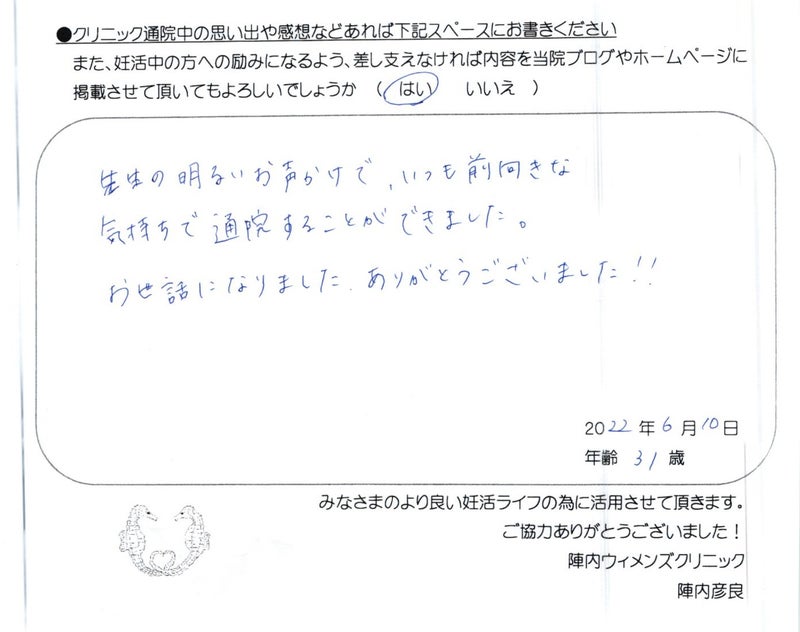 ●クリニック通院中の思い出や感想などあれば下記スペースにお書きください
また、妊活中の方への励みになるよう、差し支えなければ内容を当院ブログやホームページに
掲載させて頂いてもよろしいでしょうか （ はい　いいえ ）
先生の明るいお声かけで、いつも前向きな
気持ちで通院することができました。
お世話になりました。ありがとうございました!!
2022年6月10日
年齢 31歳
みなさまのより良い妊活ライフの為に活用させて頂きます。
ご協力ありがとうございました！
陣内ウィメンズクリニック
陣内彦良